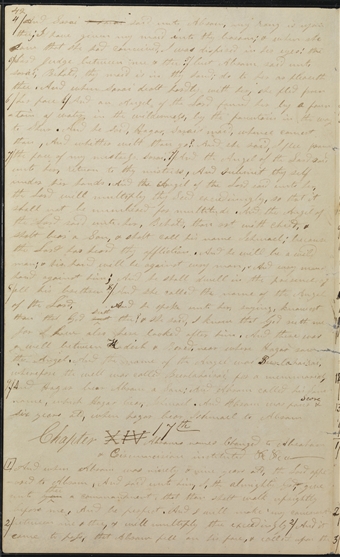 And Sarai said unto Abram, my wrong be upon
thee; I have given my maid unto thy bosom; & when she
saw that she had conceived, I was despised in her eyes: the
Lord judge between me & thee. But Abram said unto
Sarai, Behold, thy maid is in thy hand; do to her as pleaseth
thee. And when Sarai dealt hardly with her, she fled from
her face. And an Angel of the Lord found her by a foun-
tain of water, in the wilderness, by the fountain in the way
to Shur. And he said, Hagar, Sarai's maid, whence camest
thou, And whither wilt thou go? And she said, I flee from
the face of my mistress Sarai. And the Angel of the Lord said
unto her, return to thy mistress, And submit thy self
under her hands. And the Angel of the Lord said unto her,
the Lord will multiply thy seed exceedingly, so that it
shall not be numbered for multitude. And the Angel of
the Lord said unto her, Behold, thou art with child, &
shalt bear a Son, & shalt call his name Ishmael; because
the Lord has heard thy affliction. And he will be a wild
man; & his hand will be against every man, And every mans
hand against him; And he shall dwell in the presence of
all his brethren. And she called the name of the Angel
of the Lord,
And he spake unto her, saying, knowest
thou that God seest thee? & she said, I know that God seest me
for I have also here looked after him. And there was
a well between Kadesh & Bered,
the Angel. And the name of the Angel was
wherefore the well was called
And Hagar bear Abram a Son; And Abram called his Sons
name, which Hagar bear, Ishmael. And Abram was four score &
Six years old, when Hagar bear Ishmael to Abram
Chapter XIV 17th
Abrams name Changed to Abraham
& Circumcision instituted &c &c
And when Abram was ninety & nine years old, the Lord ap-
peared to Abram, And said unto him, I, the almighty God, give
unto thee a commandment; that thou shalt walk uprightly
before me, And be perfect. And I will make my covenant
between me & thee, & I will multiply thee exceedingly. And it
came to pass, that Abram fell on his face, & called upon